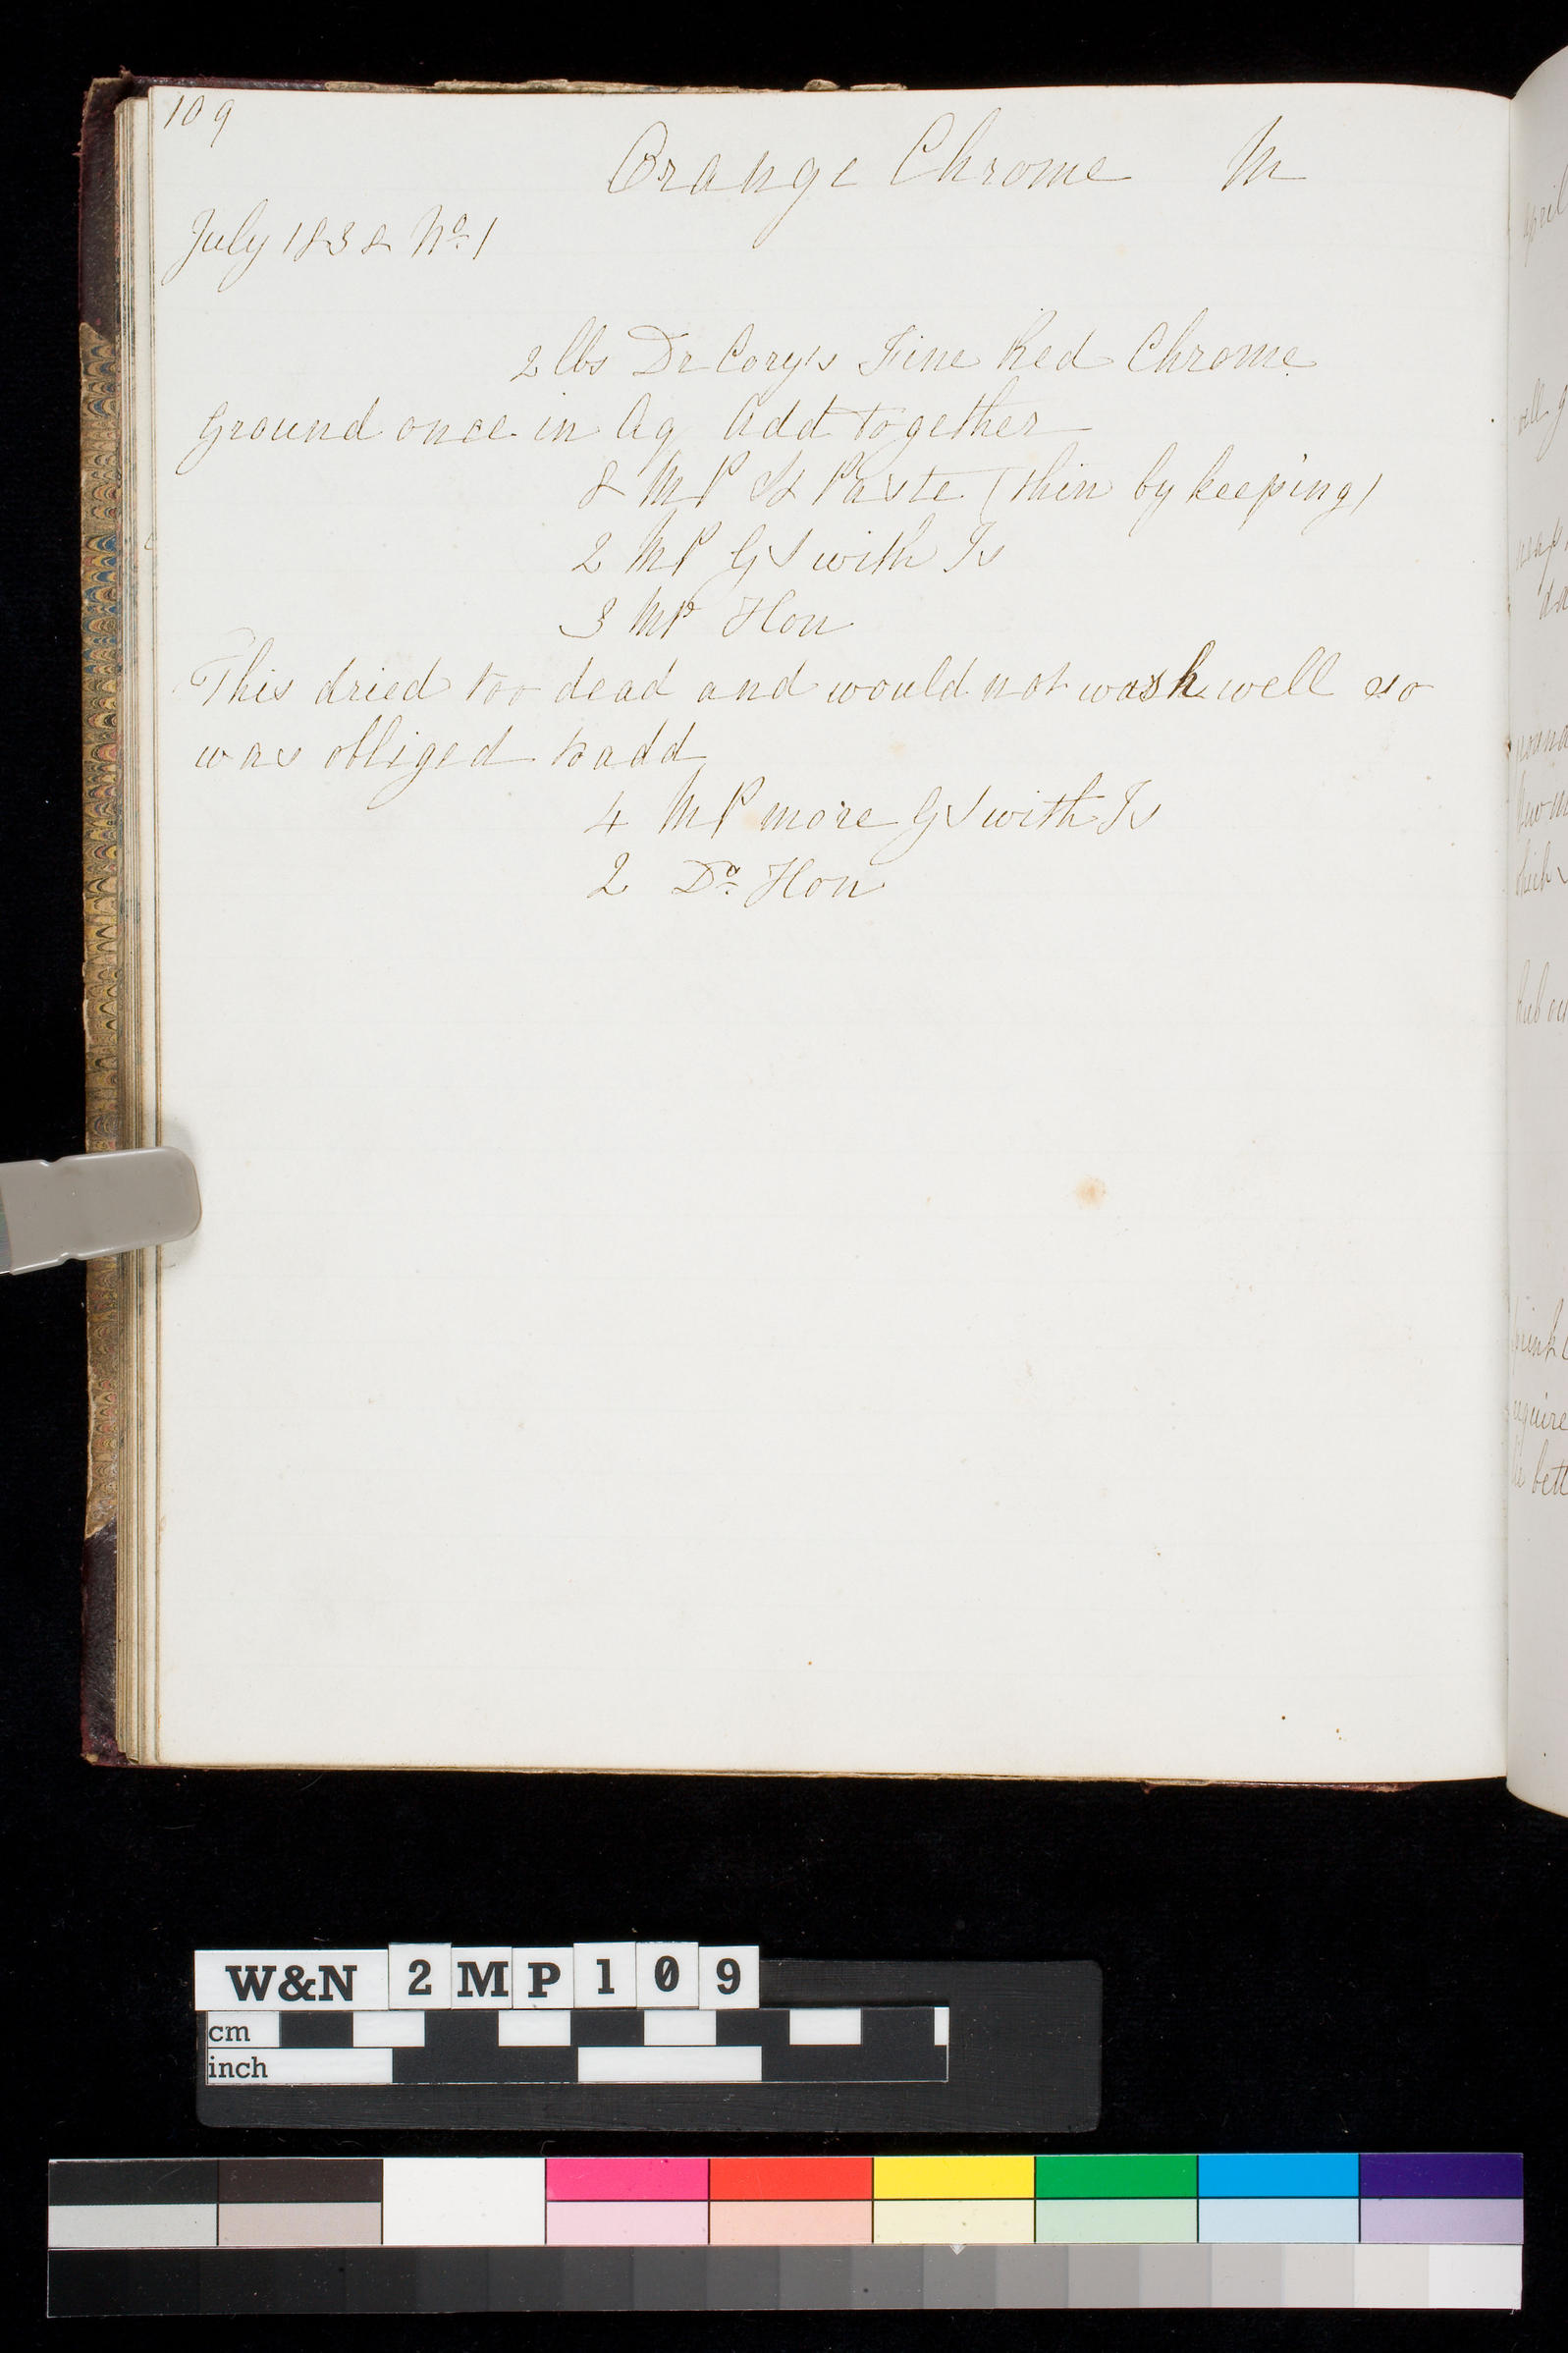 109
Orange Chrome M
July 1838 No. 1
2 lbs Dr Cory's Fine Red Chrome
Ground once in Aq Add together
8 MP St Paste (thin by keeping)
2 MP GS with Is
3 MP Hon
This dried too dead and would not wash well so
was obliged to add
4 MP more GS with Is
2 Do. Hon
W&N 2MP109
cm
inch